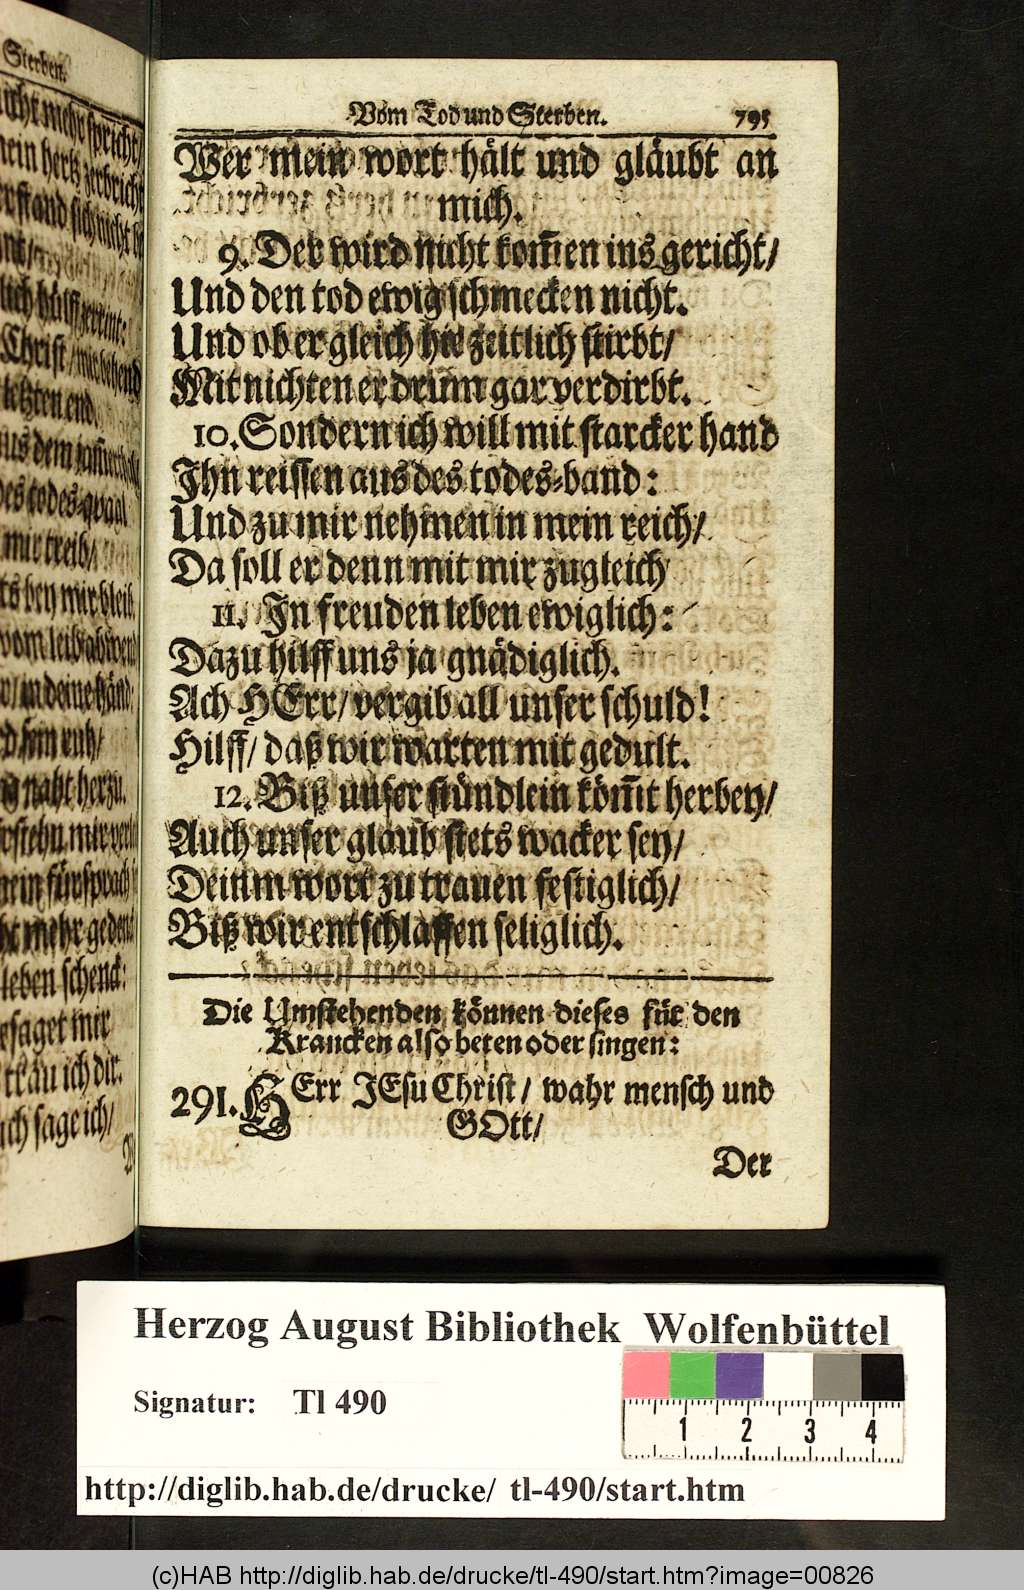 Sterben.
Vom Tod und Sterben. 795
Wer mein wort hält und gläubt an
mich.
9. Der wird nicht kom̃en ins gericht/
Und den tod ewig schmecken nicht.
Und ob er gleich hie zeitlich stirbt/
Mit nichten er drüm gar verdirbt.
10. Sondern ich will mit starcker hand
Ihn reissen aus des todes-band:
Und zu mir nehmen in mein reich/
Da soll er denn mit mir zugleich
11. In freuden leben ewiglich:
Dazu hilff uns ja gnädiglich.
Ach HErr/ vergib all unser schuld!
Hilff/ daß wir warten mit gedult.
12. Biß unser stündlein köm̃t herbey/
Auch unser glaub stets wacker sey/
Deinm wort zu trauen festiglich/
Biß wir entschlaffen seliglich.
Die Umstehenden können dieses für den
Krancken also beten oder singen:
291. HErr JEsu Christ/ wahr mensch und
GOtt/
Der
icht mehr spricht/
mein hertz zerbricht
sich nicht
hülff zerrint:
Christ/ mir behend
letzten end.
aus dem
des todes-quaal
mir treib/
bey mir bleib.
vom leib abwend
in deine händ.
ruh/
naht herzu.
mein fürsprach
mehr gedenck
leben schenck:
gesaget mir
trau ich dir.
sage ich/
Herzog August Bibliothek Wolfenbüttel
Signatur: Tl 490
1 2 3 4
http://diglib.hab.de/drucke/ tl-490/start.htm
(c)HAB http://diglib.hab.de/drucke/tl-490/start.htm?image=00826